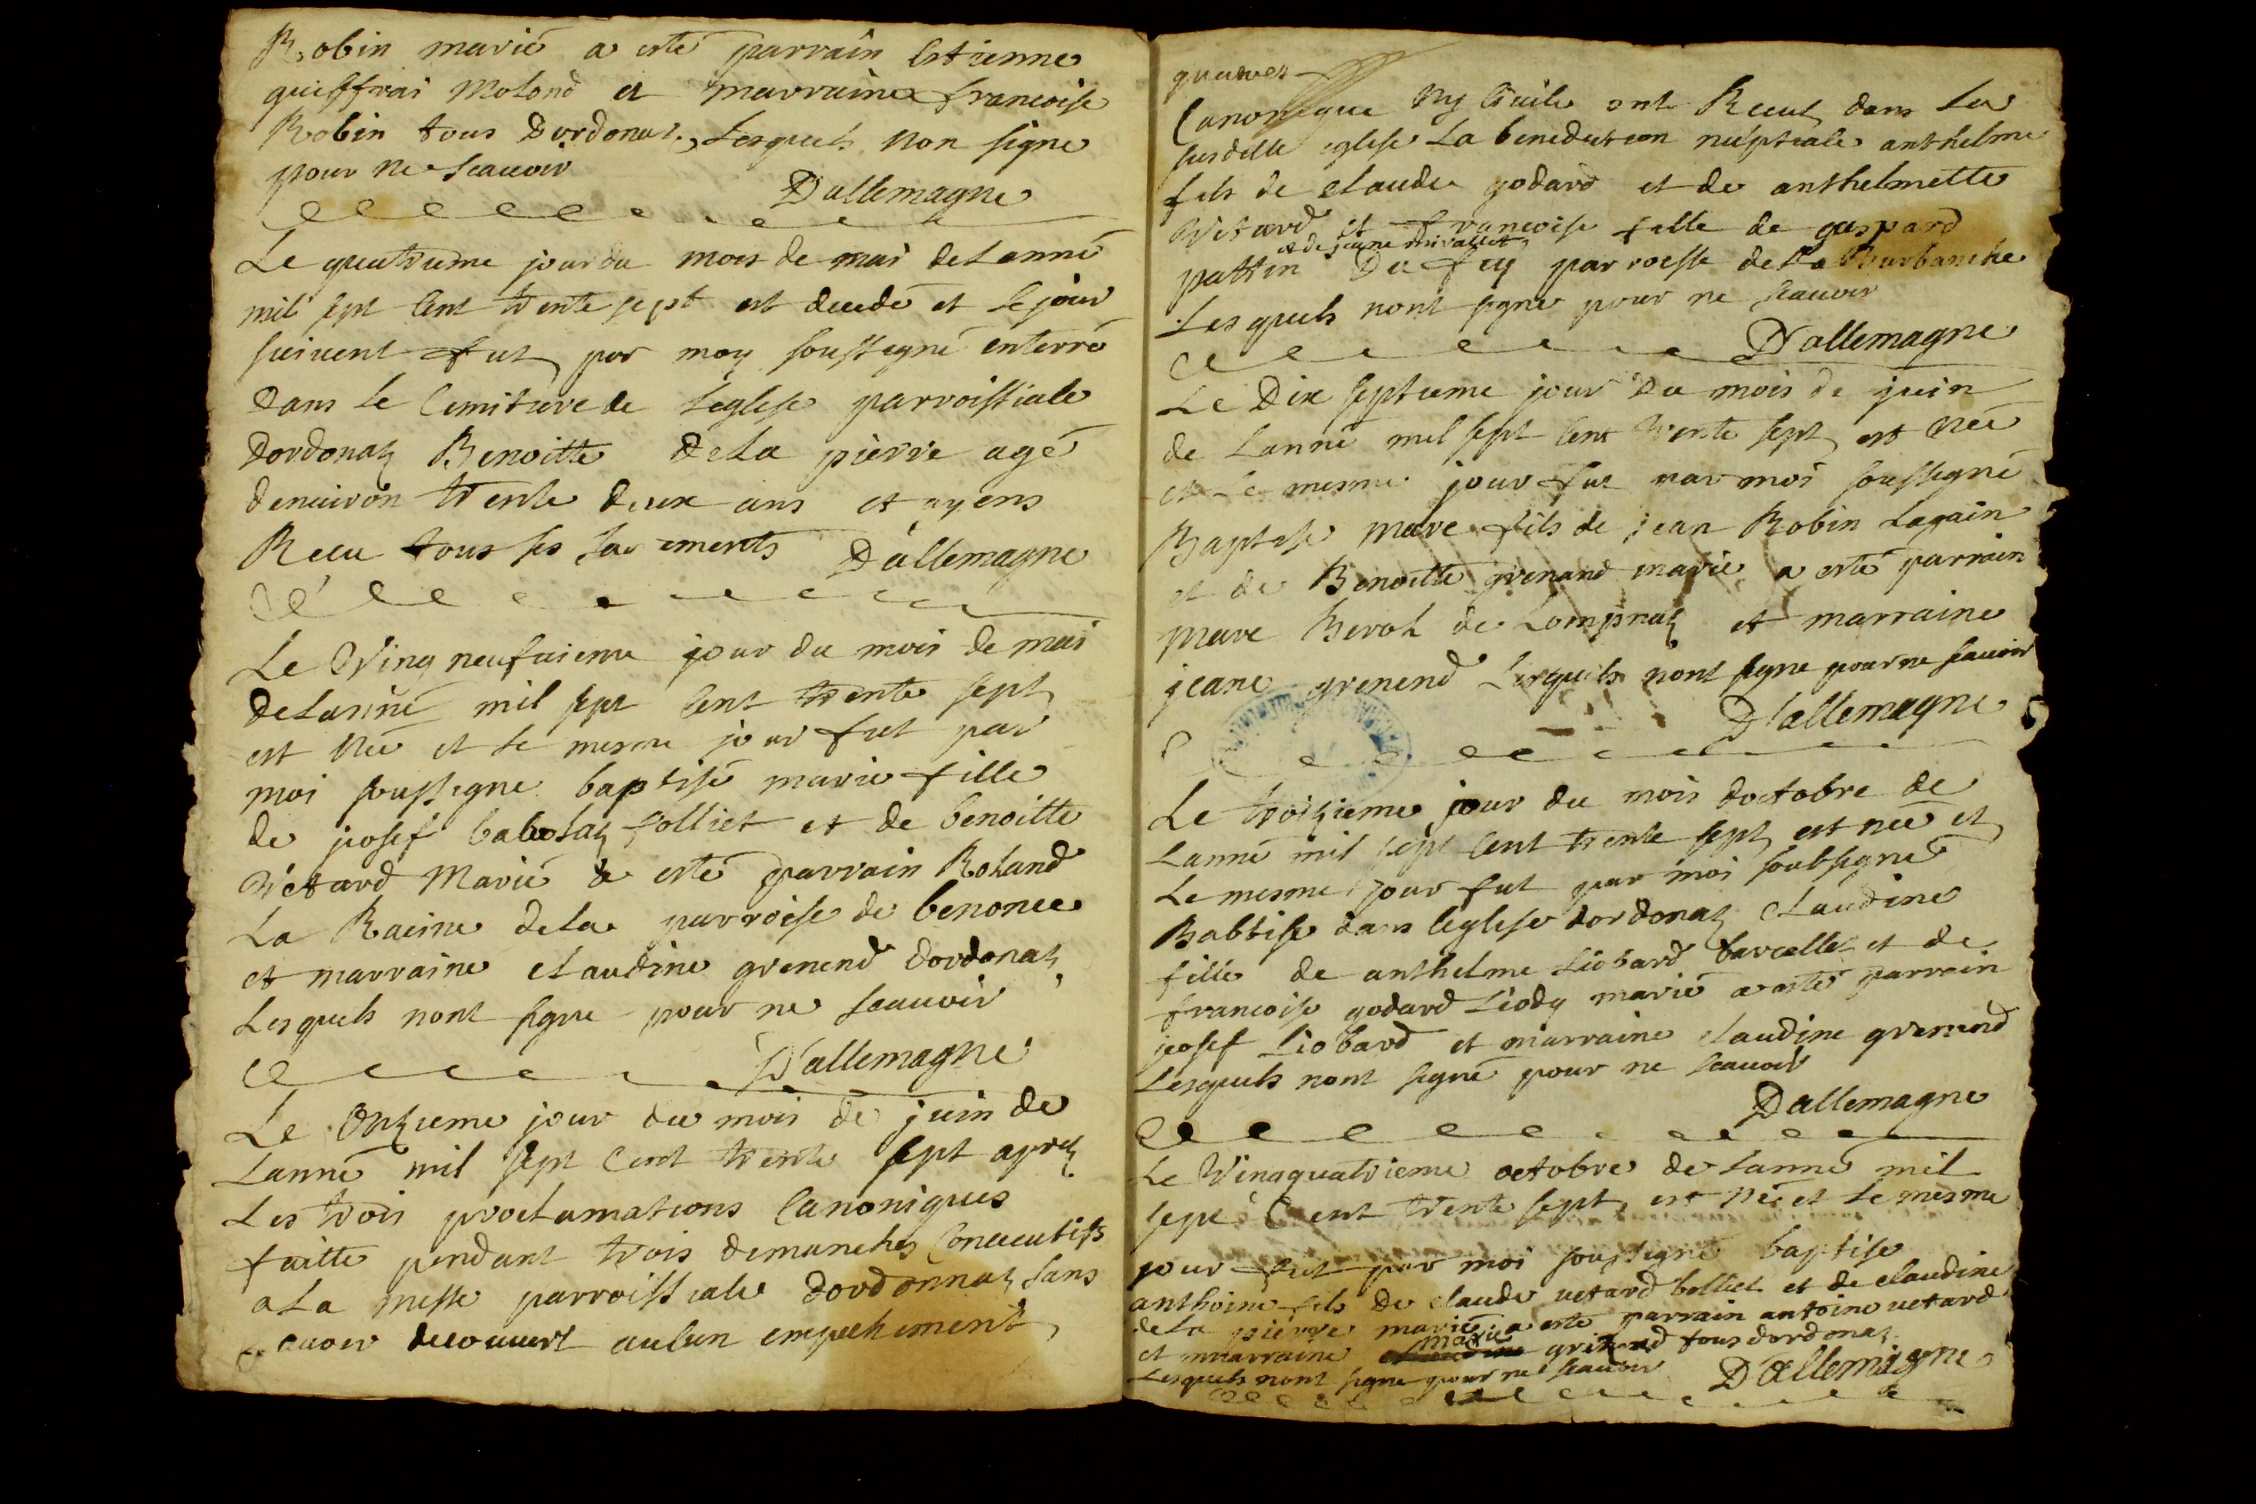 Robin marié a esté parrain Estienne
Molond et marraine francoise
Robin tous Dordonat, Lesquels non signe
pour ne scauoir
Dallemagne
Le quatrieme jour du mois de mai de Lanné
mil sept Cent trente sept est decedé et le jour
suiuent fut par moy soussigné enterré
Dans le Cemitiere de Leglise parroissiale
Dordonaz Benoitte De La pierre agé
denuiron trente deux ans et ayens
Receu tous ses sacrements D'allemagne
Le Vinq neufuieme jour du mois de mai
de Lanné mil sept Cent trente sept
est née et le mesme jour fut par
moi soussigne baptisé marie fille
de josef babolaz folliet et de benoitte
Vétard Marié a esté parrain Roland
La Racine de La parroisse de benonce
et marraine claudine grenend Dordonaz
Lesquels nont signe pour ne scauoir
D'allemagne
Le Onzieme jour du mois de juin de
Lanné mil sept Cent trente sept aprez
Les trois proclamations Canoniques
faitte pendant trois dimanches Consecutifs
a La messe parroissiale Dordonnaz sans
auoir decouuert aucun empechement
Canonique Ny Ciuile ont Receut dans La
susditte eglise La benediction nuptiale anthelme
fils de claude godard et de anthelmette
Vétard et francoise fille de gaspard
pattin et de jeane Du fey parroesse de La Burbanche
Lesquels nont signe pour ne scauoir
D'allemagne
Le Dix septieme jour Du mois de juin
de Lanné mil sept Cent trente sept est née
et Le mesme jour fut par moi soussigné
Baptise fils de jean Robin Lagain
et de Benoitte grenand marié a esté parrain
de Lompnaz et marraine
jeane grenend Lesquels nont signe pour ne scauoir
D'allemagne
Le troizieme jour du mois doctobre de
Lanné mil sept Cent trente sept est née et
Le mesme jour fut par moi soubsigné
Babtise dans leglise dordonaz Claudine
fille de anthelme Liobard barcellet et de
francoise godard Liody marié a esté parrain
josef Liobard et marraine claudine grenend
Lesquels nont signé pour ne scauoir
Dallemagne
Le Vinqquatrieme octobre de Lanné mil
sept Cent trente sept est né et Le mesme
jour fut par moi soussigné baptise
anthoine fils De claude uetard bolliet et de claudine
de La pierre marié a esté parrain antoine uetard
et marraine marie grenend tous dordonaz
Lesquels nont signe pour ne scauoir D'allemagne